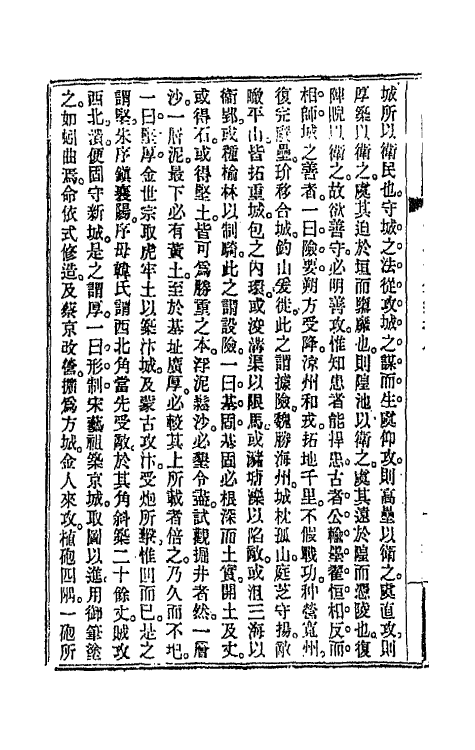 城所以衛民也。守城之法。從攻城之謀而生。處仰攻。則高壘以衛之。處直攻。則
厚築以衛之。處其迫於垣而鹽也。則隍池以衛之。處其遠於隍而憑陵也。復
陴睨以衛之。故欲善守。必明善攻。惟知患者能捍患。古者公輸墨翟。恒相反而
相師。城之善者。一曰險要。朔方受降。涼州和戎。拓地千里。不假戰功。种營寬州。
復完廢壘。玠移合城。釣山爰徙。此之謂據險。魏勝海州。城枕孤山。庭芝守揚。敵
瞰平山。皆拓重城。包之內環。或浚溝渠以限馬。或瀦塘濼以陷敵。或沮三海以
衛郢。或種榆林以制騎。此之謂設險。一曰基固。基固必根深而土實。開土及丈。
或得石。或得堅土。皆可為勝重之本。浮泥鬆沙。必墾令盡。試觀掘井者然。一層
沙。一層泥。最下必有黃土。至於基址廣厚。必較其上所載者倍之。乃久而不圮。
一曰堅厚。金世宗取虎牢土以築汴城。及蒙古攻汴。受炮所擊。惟凹而已。是之
謂堅。朱序鎮襄陽。序母韓氏。謂西北角當先受敵。於其角斜築二十餘丈。賊攻
西北潰。便固守新城。是之謂厚。一曰形制。宋藝祖築京城。取圖以進。用御筆塗
之。如蚓曲焉。命依式修造。及蔡京改舊。擴為方城。金人來攻。植砲四隅。一砲所